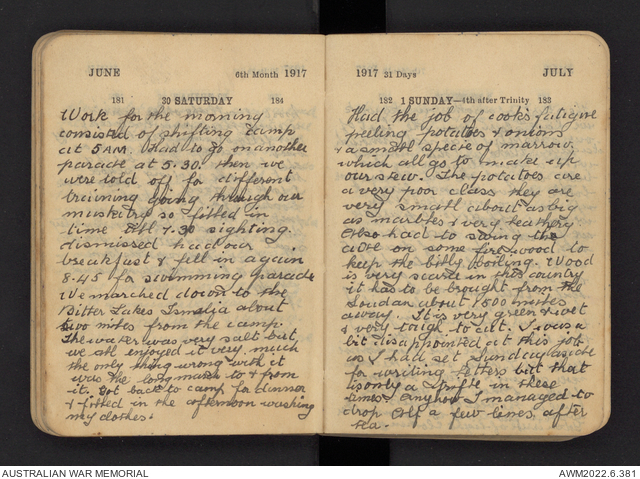 JUNE 6th Month 1917
181 30 SATURDAY 184
Work for the morning
consisted of shifting camp
at 5 AM. Had to go on another
parade at 5.30. then we
were told off for different
training going through our
musketry so filled in
time till 7.30 sighting.
dismissed had our
breakfast & fell in again
8.45 for swimming parade
We marched down to the
Bitter Lakes Ismalia about
two miles from the camp.
The water was very salt but
we all enjoyed it very much
the only thing wrong with it
was the long march to & from
it. Got back to camp for dinner
& filled in the afternoon washing
my clothes.
1917 31 Days JULY
182 1 SUNDAY—4th after Trinity 183
Had the job of cooks fatigue
peeling potatoes & onions
& a small specie of marrow
which all go to make up
our stew. The potatoes are
a very poor class they are
very small about as big
as marbles & very leathery
Also had to swing the
axe on some firewood to
keep the billy boiling. Wood
is very scarce in this country
it has to be brought from the
Soudan about 1500 miles
away. It is very green & wet
& very tough to cut. I was a
bit disappointed at this job
as I had set Sunday aside
for writing letters but that
is only a trifle in these
times. Anyhow I managed to
drop off a few lines after
tea.
AUSTRALIAN WAR MEMORIAL AWM2022.6.381